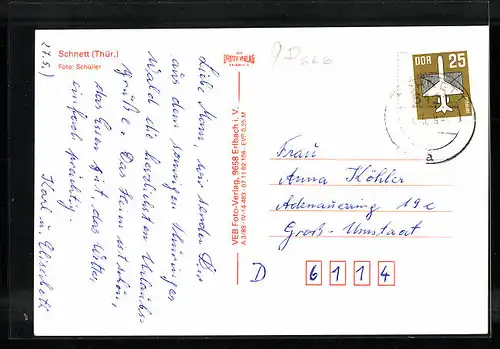 Schnett (Thür.)
Foto: Schüller
27.5.)
Liebe Mam, wir senden Dir
aus dem sonnigen Thüringer
Wald die herzlichsten Urlaubs-
grüße. Das Heim ist schön,
das Essen gut, das Wetter
einfach prächtig.
Karl u. Elisabeth
VEB Foto-Verlag, 9658 Erlbach i. V.
A 3/89 · IV-14-483 · 07 11 02 106 · EVP 0,25 M
DDR 25
Frau
Anna Köhler
Adenauerring 19c
Groß-Umstadt
D 6114